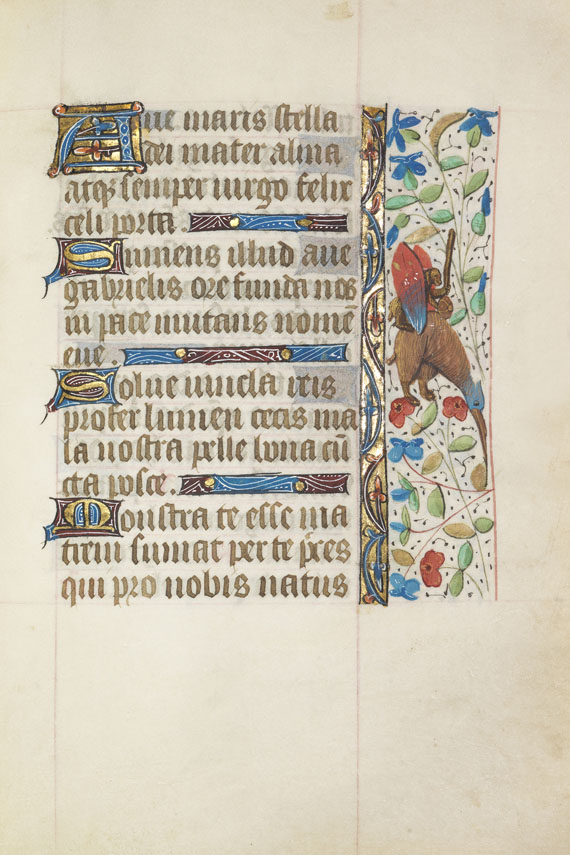 Aue maris stella
dei mater alma
atqꝫ semper uirgo felix
celi porta.
Sumens illud aue
gabrielis ore funda nos
in pace mutans nomē
eue.
Solue uincla reis
profer lumen cecis ma
la nostra pelle bona cū
cta posce.
Monstra te esse ma
trem sumat per te p̄ces
qui pro nobis natus